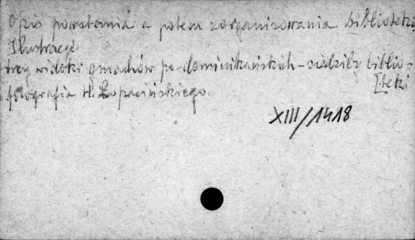 Opis powstania a potem zorganizowania biblioteki
Ilustracje
trzy widoki gmachów po-dominikańskich - siedziby biblio=
teki
fotografia H. Łopacińskiego.
XIII/1418